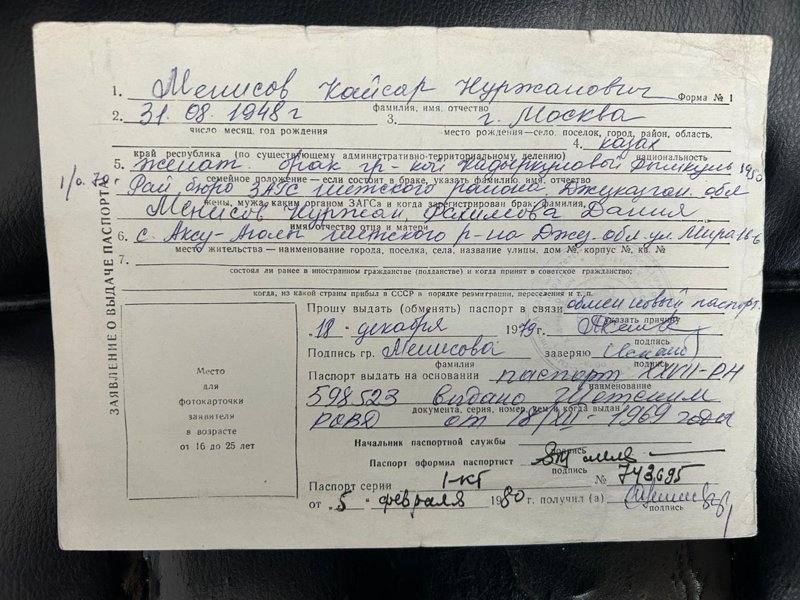 ЗАЯВЛЕНИЕ О ВЫДАЧЕ ПАСПОРТА
1. Менисов Кайсар Нуржанович Форма № 1
фамилия, имя, отчество
2. 31. 08. 1948 г 3. г. Москва
число месяц, год рождения место рождения—село, поселок, город, район, область,
4. казах
край республика (по существующему административно-территориальному делению) национальность
5. женат. брак гр-кой Кадыркуловой 1950
семейное положение—если состоит в браке, указать фамилию, имя, отчество
Рай бюро ЗАГС Шетского района, Джезказган. обл
жены, мужа, каким органом ЗАГСа и когда зарегистрирован брак, фамилия,
Менисов Нуржан, Рахимова Дания
имя, отчество отца и матери
6. с. Аксу-Аюлы Шетского р-на Джез. обл. ул Мира 16-6
место жительства—наименование города, поселка, села, название улицы, дом №, корпус №, кв. №
7.
состоял ли ранее в иностранном гражданстве (подданстве) и когда принят в советское гражданство;
когда, из какой страны прибыл в СССР в порядке реэмиграции, переселения и т. п.
Прошу выдать (обменять) паспорт в связи обмен новый паспорт.
указать причину
18 " декабря 1979 г.
подпись
Подпись гр. Менисова заверяю
фамилия подпись
Паспорт выдать на основании паспорт XXVII-РН
наименование
598523 выдано Шетским
документа, серия, номер, кем и когда выдан
РОВД от 18/XII-1969 года
Место
для
фотокарточки
заявителя
в возрасте
от 16 до 25 лет
Начальник паспортной службы
подпись
Паспорт оформил паспортист
подпись
Паспорт серии I-КГ № 743695
от „5 " февраля 1980 г. получил (а)
подпись